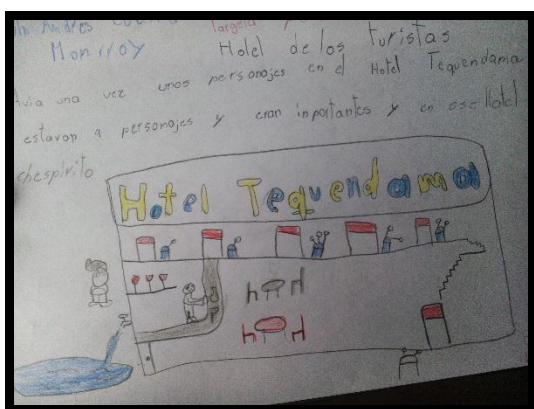 Andres Targeta
Monrroy Hotel de los turistas
Avia una vez unos personajes en el Hotel Tequendama
estavan 4 personajes y eran inportantes y en ese Hotel
chespirito
Hotel Tequendama